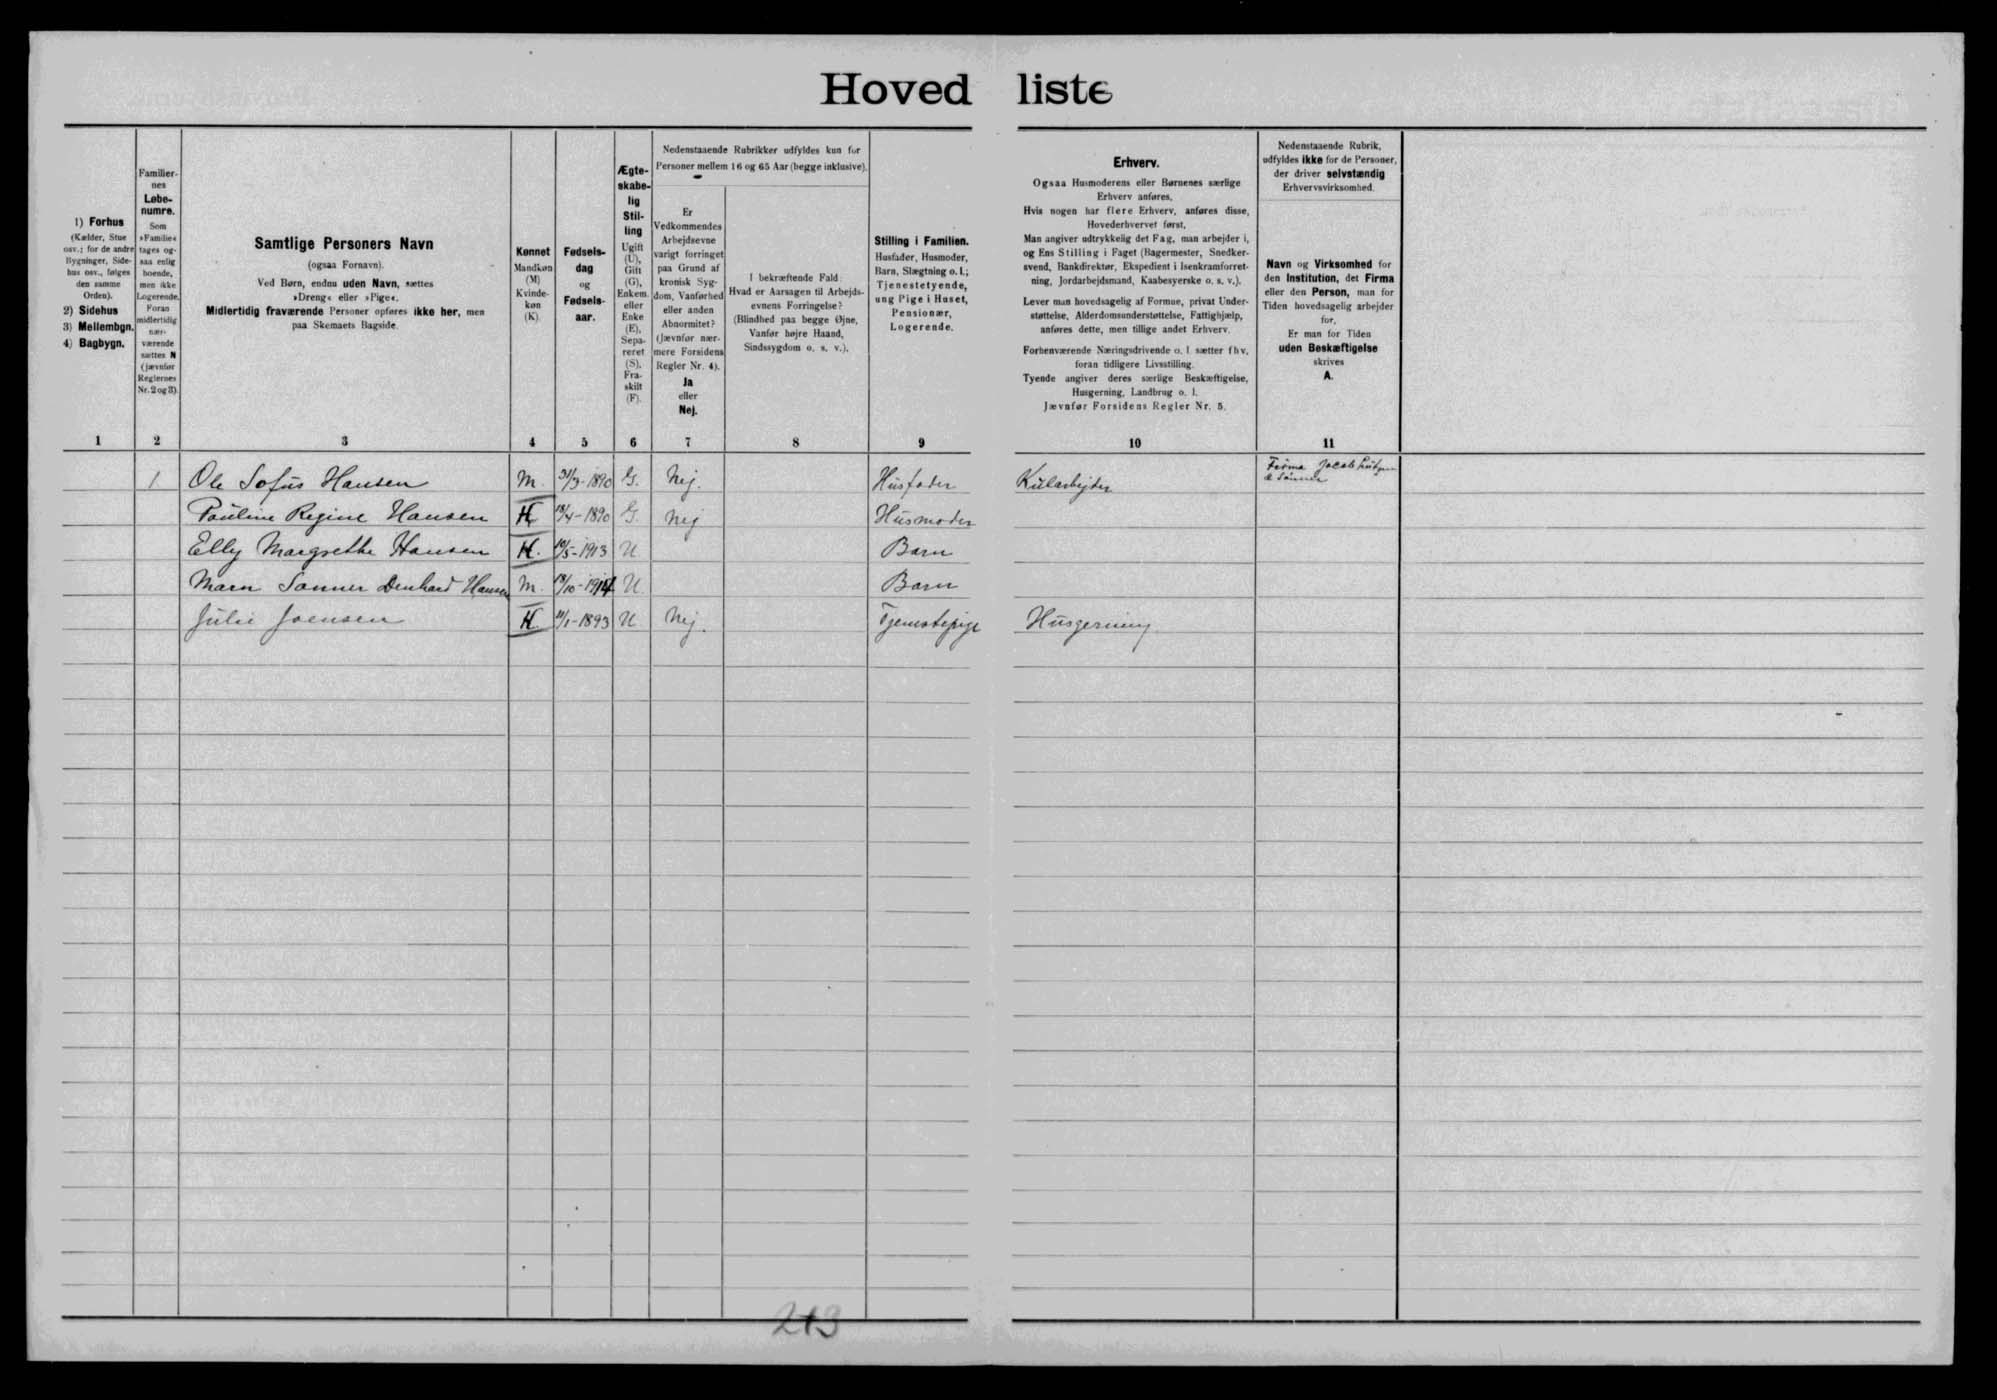 Hovedliste
1) Forhus
(Kælder, Stue
osv.; for de andre
Bygninger, Side-
hus osv., følges
den samme
Orden).
2) Sidehus
3) Mellembgn.
4) Bagbygn.
1
Familier-
nes
Løbe-
numre.
Som
»Familie«
tages og-
saa enlig
boende,
men ikke
Logerende.
Foran
midlertidig
nær-
værende
sættes N
(jævnfør
Reglernes
Nr. 2 og 3).
2
Samtlige Personers Navn
(ogsaa Fornavn).
Ved Børn, endnu uden Navn, sættes
»Dreng« eller »Pige«.
Midlertidig fraværende Personer opføres ikke her, men
paa Skemaets Bagside.
3
Kønnet
Mandkøn
(M)
Kvinde-
køn
(K).
4
Fødsels-
dag
og
Fødsels-
aar.
5
Ægte-
skabe-
lig
Stil-
ling
Ugift
(U),
Gift
(G),
Enkem.
eller
Enke
(E),
Sepa-
reret
(S),
Fra-
skilt
(F).
6
Nedenstaaende Rubrikker udfyldes kun for
Personer mellem 16 og 65 Aar (begge inklusive).
Er
Vedkommendes
Arbejdsevne
varigt forringet
paa Grund af
kronisk Syg-
dom, Vanførhed
eller anden
Abnormitet?
(Jævnfør nær-
mere Forsidens
Regler Nr. 4).
Ja
eller
Nej.
7
I bekræftende Fald:
Hvad er Aarsagen til Arbejds-
evnens Forringelse?
(Blindhed paa begge Øjne,
Vanfør højre Haand,
Sindssygdom o. s. v.).
8
Stilling i Familien.
Husfader, Husmoder,
Barn, Slægtning o. l.;
Tjenestetyende,
ung Pige i Huset,
Pensionær,
Logerende.
9
Erhverv.
Ogsaa Husmoderens eller Børnenes særlige
Erhverv anføres,
Hvis nogen har flere Erhverv, anføres disse,
Hovederhvervet først,
Man angiver udtrykkelig det Fag, man arbejder i,
og Ens Stilling i Faget (Bagermester, Snedker-
svend, Bankdirektør, Ekspedient i Isenkramforret-
ning, Jordarbejdsmand, Kaabesyerske o. s. v.).
Lever man hovedsagelig af Formue, privat Under-
støttelse, Alderdomsunderstøttelse, Fattighjælp,
anføres dette, men tillige andet Erhverv.
Forhenværende Næringsdrivende o. l. sætter fhv.
foran tidligere Livsstilling.
Tyende angiver deres særlige Beskæftigelse,
Husgerning, Landbrug o. l.
Jævnfør Forsidens Regler Nr. 5.
10
Nedenstaaende Rubrik,
udfyldes ikke for de Personer,
der driver selvstændig
Erhvervsvirksomhed.
Navn og Virksomhed for
den Institution, det Firma
eller den Person, man for
Tiden hovedsagelig arbejder
for,
Er man for Tiden
uden Beskæftigelse
skrives
A.
11
1 Ole Sofus Hansen M. 31/3-1890 G. Nej. Husfader Kularbejder Firma Jacob
& Sønner
Pauline Regine Hansen K 18/4-1890 G. Nej Husmoder
Elly Margrethe Hansen K. 10/5-1913 U Barn
Sanner Denhard Hansen M. 18/10-1914 U. Barn
Julie Joensen K. 11/1-1893 U Nej. Tjenestepige Husgerning
213